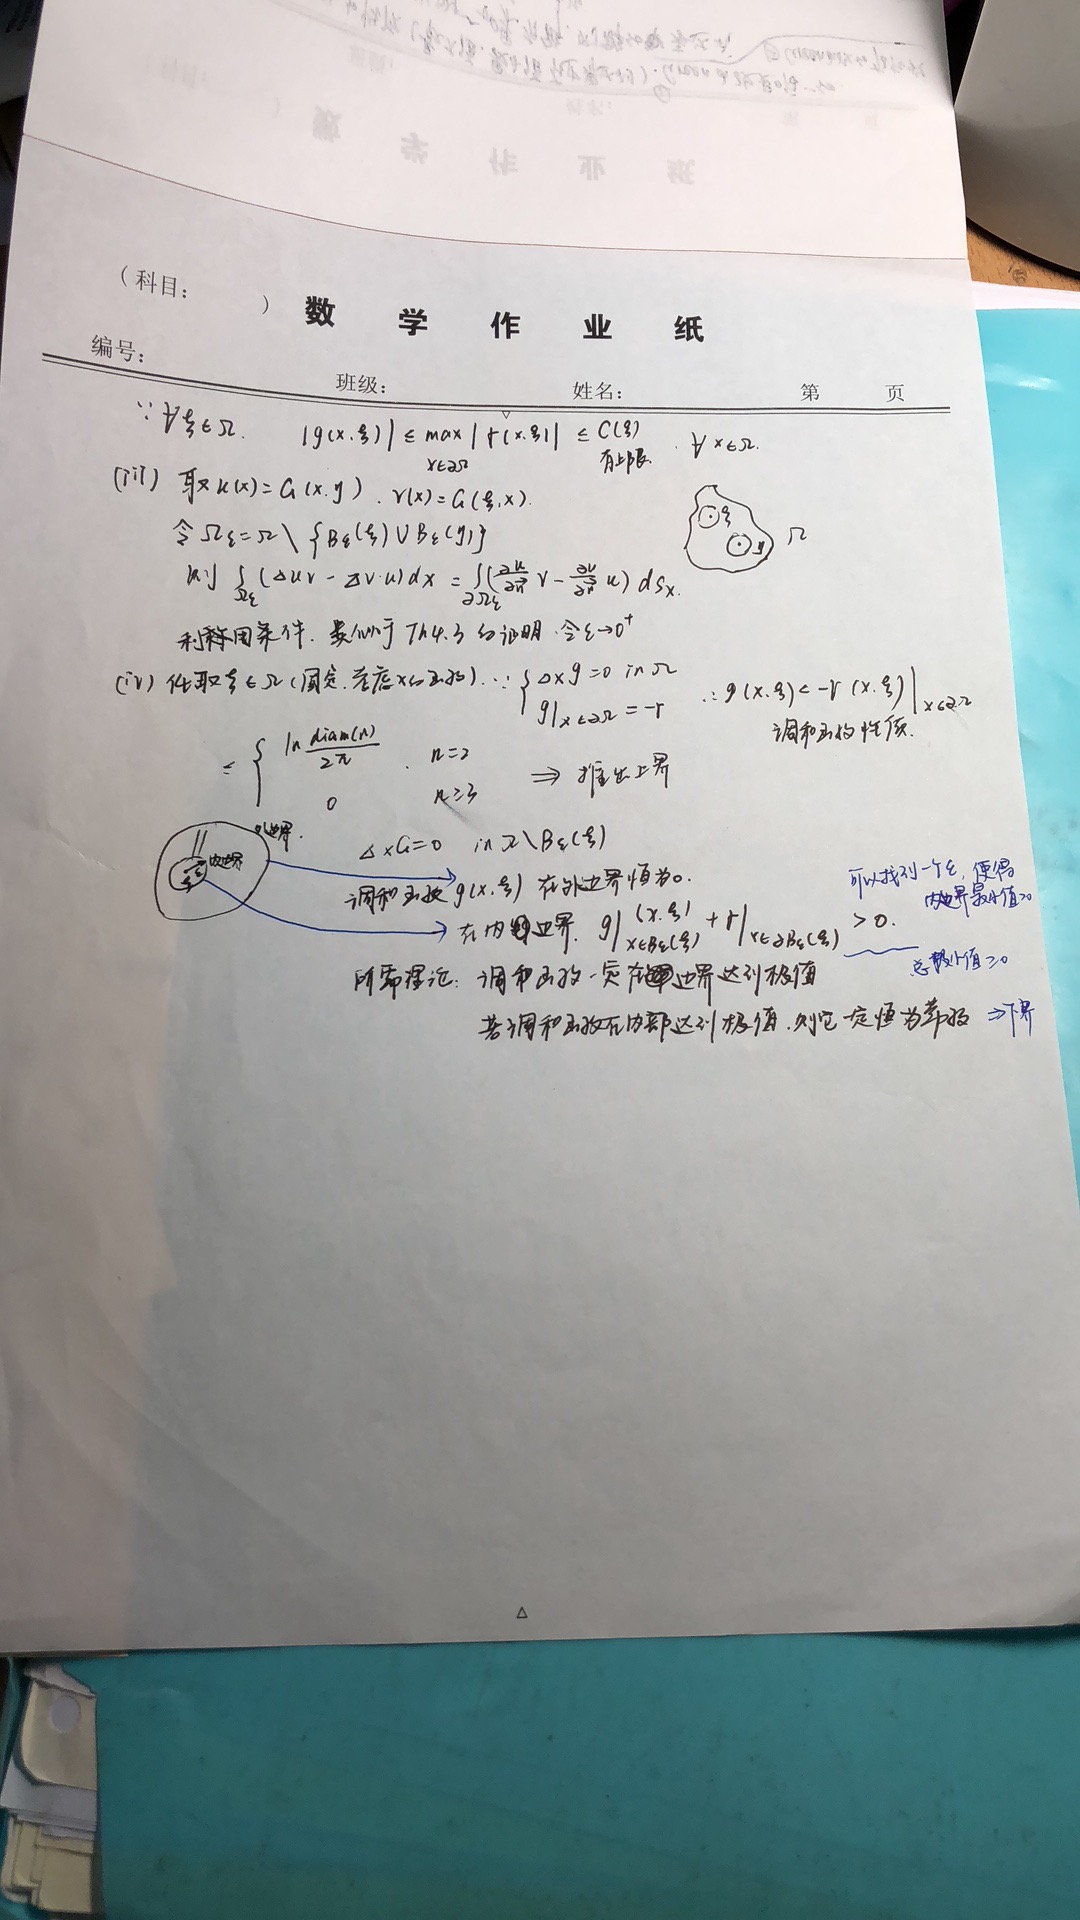 (科目: )
数学作业纸
编号:
班级: 姓名: 第 页
∵ ∀ξ∈Ω. |g(x.ξ)| ≤ max x∈∂Ω |Γ(x.ξ)| ≤ C(ξ) 有上限. ∀x∈Ω.
(iii) 取u(x)=G(x.y). v(x)=G(ξ,x).
令Ωε=Ω\{Bε(ξ)∪Bε(y)}
则 ∫Ωε (Δu v - Δv·u)dx = ∫∂Ωε (∂u/∂n⃗ v - ∂v/∂n⃗ u) dSx.
ξ y Ω
条件. 类似于Th4.3的证明.令ε→0⁺
(iv) 任取ξ∈Ω(固定.考虑x的函数). ∵ { Δxg=0 in Ω
g|x∈∂Ω = -Γ ∴ g(x.ξ)< -Γ(x.ξ)|x∈∂Ω
调和函数性质.
≤ { ln diam(Ω)/2π . n=2
0 n≥3 ⇒ 推出上界
外边界.
内边界
ξ ε
ΔxG=0 in Ω\Bε(ξ)
调和函数g(x.ξ)在外边界恒为0.
在内边界. g|(x.ξ) x∈Bε(ξ) + Γ|x∈∂Bε(ξ) >0.
可以找到一个ε,使得
内边界最小值>0
总最小值≥0
所需理论: 调和函数一定在边界达到极值
若调和函数在内部达到极值.则它一定恒为常数 ⇒下界